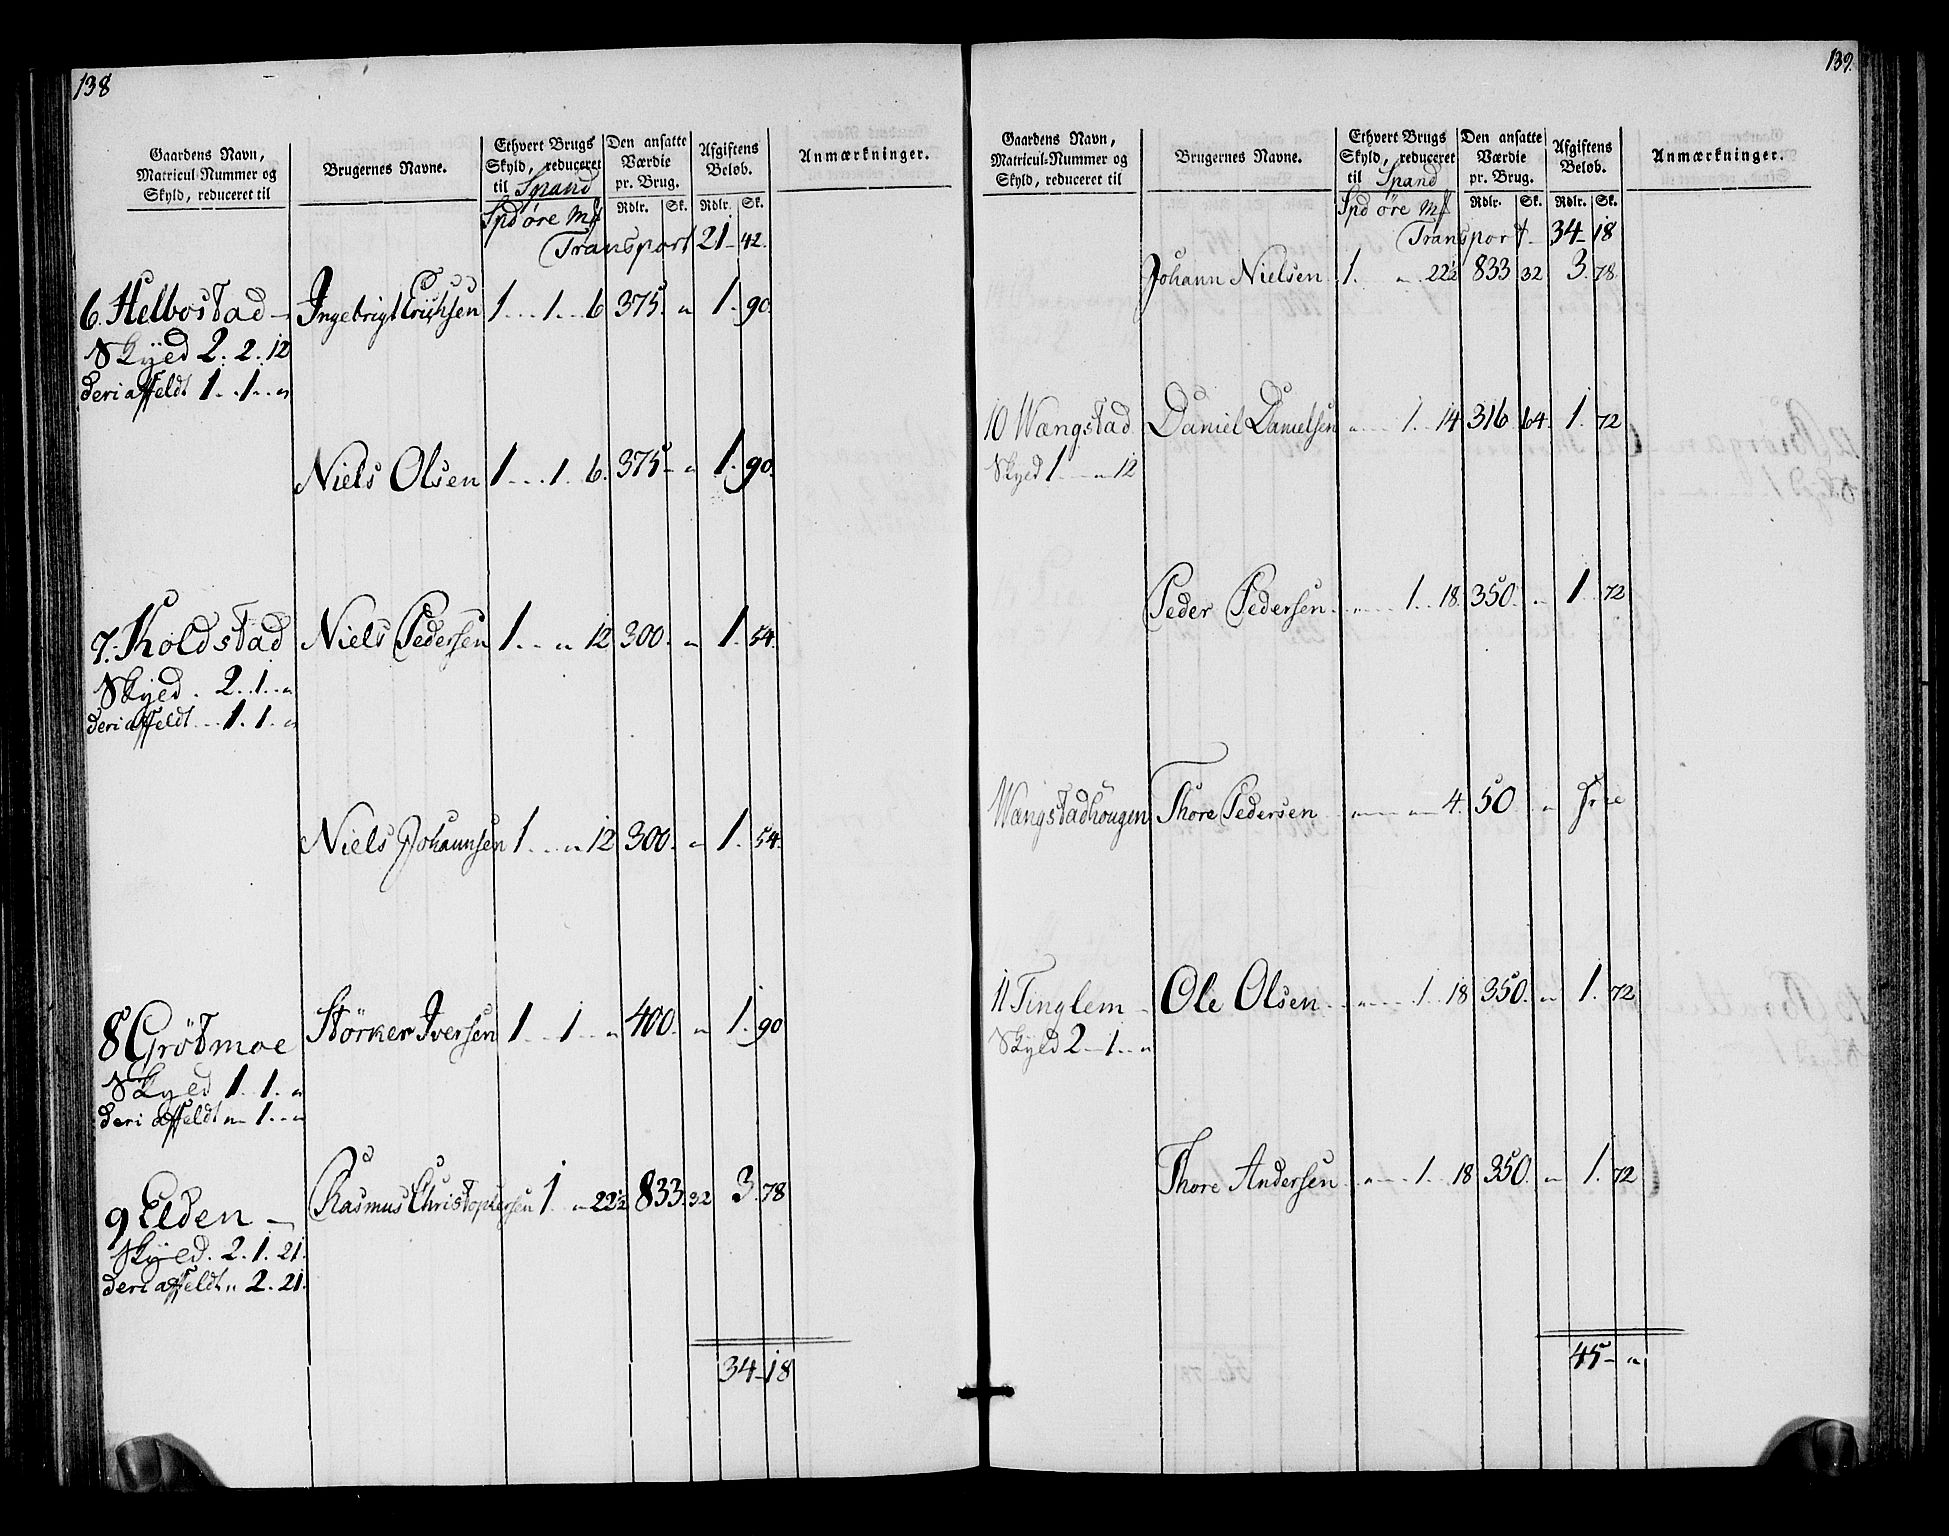 138
Gaardens Navn, Matricul-Nummer og Skyld, reduceret til
Brugernes Navne.
Ethvert Brugs Skyld, reduceret til Spand
Den ansatte Værdie pr. Brug.
Afgiftens Beløb.
Anmærkninger.
Spd øre Mk
Rdlr. Sk. Rdlr. Sk.
Transport 21 - 42.
6. Helbostad - Ingebrigt Erichsen 1 . . 1 . . 6 375. " 1. 90.
Skyed 2. 2. 12
deri affeldt 1 . . 1 . . "
Niels Olsen 1 . . . 1 . 6. 375 - " 1. 90.
7. Koldstad Niels Pedersen 1 . . " 12 300. " 1. 54.
Skyed . 2 . 1 . . "
deri affeldt . . 1. 1. "
Niels Johannsen 1 . . " 12 300. " 1. 54.
8 Grötmoe Störker Iversen 1 . . 1 . . " 400. " 1. 90
Skyed 1. 1. "
deri affeldt " 1 . . "
9 Elden - Rasmus Christophersen 1. " 22½ 833. 32 3. 78
Skyed. 2. 1. 21.
deri affeldt " 2. 21.
34 - 18
139.
Gaardens Navn, Matricul-Nummer og Skyld, reduceret til
Brugernes Navne.
Ethvert Brugs Skyld, reduceret til Spand
Den ansatte Værdie pr. Brug.
Afgiftens Beløb.
Anmærkninger.
Spd øre Mk
Rdlr. Sk. Rdlr. Sk.
Transport - 34 - 18
Johann Nielsen 1. " 22½ 833 32 3. 78.
10 Wængstad Daniel Danielsen " 1. 14 316 64. 1. 72
Skyed 1 " 12
Peder Pedersen " 1. 18. 350. " 1. 72
Wængstadhougen Thore Pedersen " " 4. 50 " frie
11 Tinglem - Ole Olsen " 1. 18 350. " 1. 72
Skyld 2 - 1 . . "
Thore Andersen " 1. 18 350. " 1. 72
45 - "